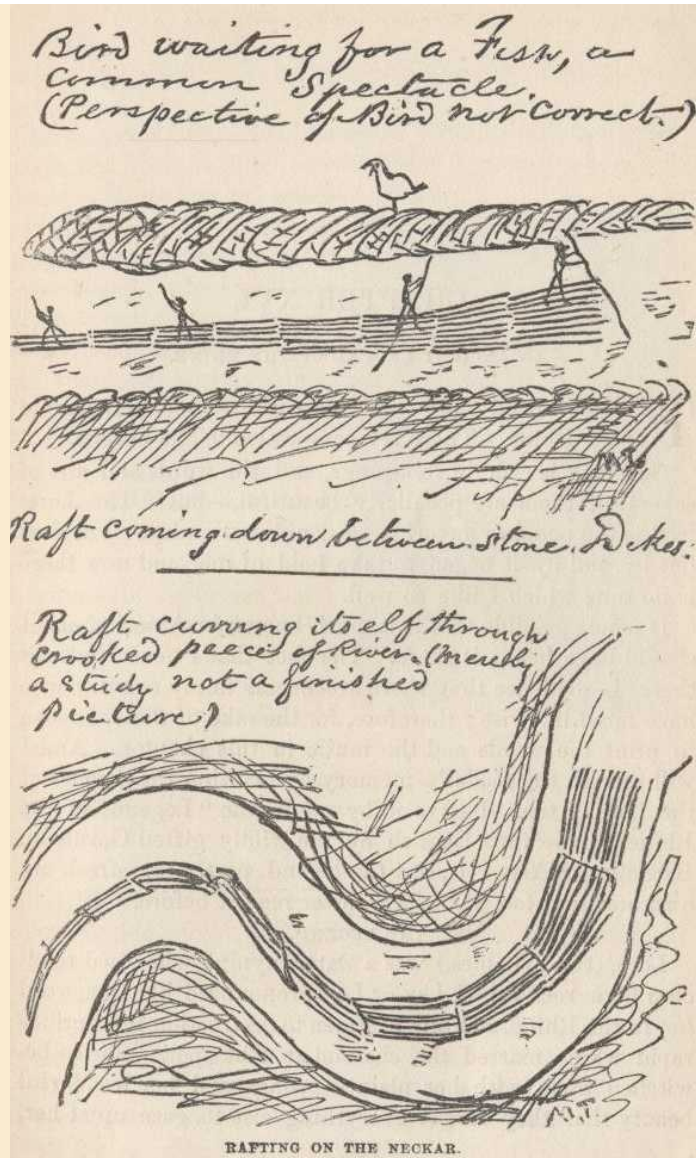 Bird waiting for a Fish, a
common Spectacle.
(Perspective of Bird not correct.)
M.T.
Raft coming down between stone Dikes.
Raft curving itself through
crooked peece of River. (merely
a study not a finished
picture)
M.T.
RAFTING ON THE NECKAR.